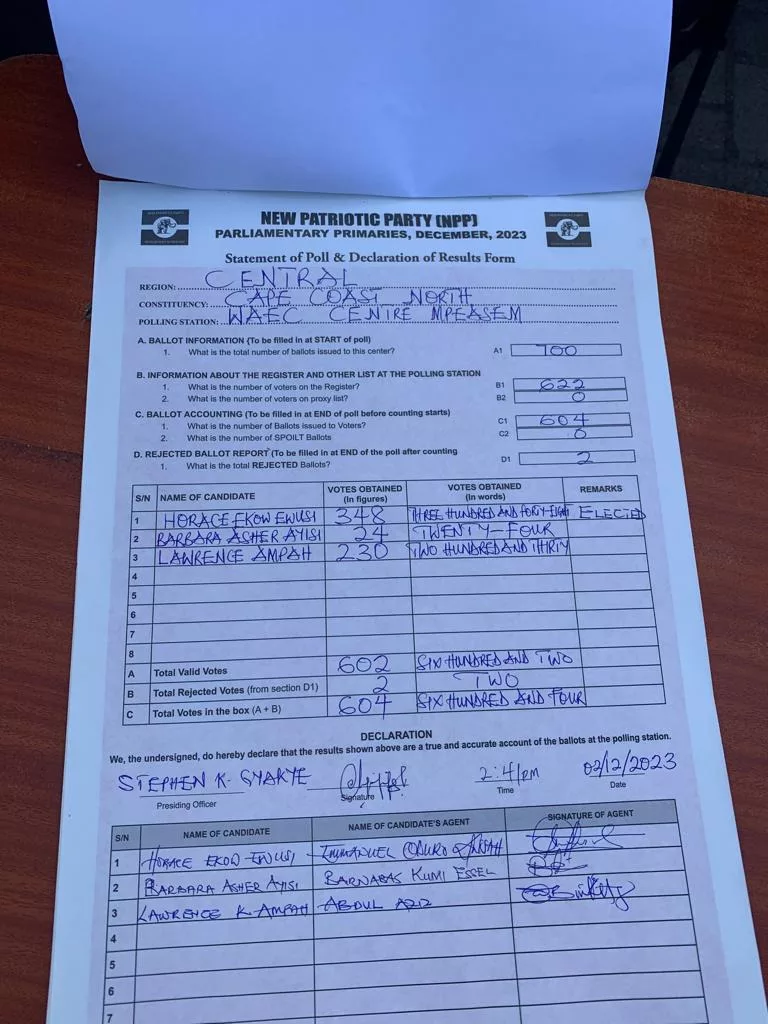 NEW PATRIOTIC PARTY (NPP)
PARLIAMENTARY PRIMARIES, DECEMBER, 2023
Statement of Poll & Declaration of Results Form
REGION: CENTRAL
CONSTITUENCY: CAPE COAST NORTH
POLLING STATION: WAEC CENTRE MPEASEM
A. BALLOT INFORMATION (To be filled in at START of poll)
1. What is the total number of ballots issued to this center? A1 700
B. INFORMATION ABOUT THE REGISTER AND OTHER LIST AT THE POLLING STATION
1. What is the number of voters on the Register? B1 622
2. What is the number of voters on proxy list? B2 0
C. BALLOT ACCOUNTING (To be filled in at END of poll before counting starts)
1. What is the number of Ballots issued to Voters? C1 604
2. What is the number of SPOILT Ballots C2 0
D. REJECTED BALLOT REPORT (To be filled in at END of the poll after counting
1. What is the total REJECTED Ballots? D1 2
S/N NAME OF CANDIDATE VOTES OBTAINED (In figures) VOTES OBTAINED (In words) REMARKS
1 HORACE EKOW EWUSI 348 THREE HUNDRED AND FORTY EIGHT ELECTED
2 BARBARA ASHER AYISI 24 TWENTY-FOUR
3 LAWRENCE AMPAH 230 TWO HUNDRED AND THIRTY
4
5
6
7
8
A Total Valid Votes 602 SIX HUNDRED AND TWO
B Total Rejected Votes (from section D1) 2 TWO
C Total Votes in the box (A + B) 604 SIX HUNDRED AND FOUR
DECLARATION
We, the undersigned, do hereby declare that the results shown above are a true and accurate account of the ballots at the polling station.
STEPHEN K. GYAKYE 2:41pm 02/12/2023
Presiding Officer Signature Time Date
S/N NAME OF CANDIDATE NAME OF CANDIDATE'S AGENT SIGNATURE OF AGENT
1 HORACE EKOW EWUSI EMMANUEL ODURO
2 BARBARA ASHER AYISI BARNABAS KUMI ESSEL
3 LAWRENCE K. AMPAH ABDUL AZIZ
4
5
6
7